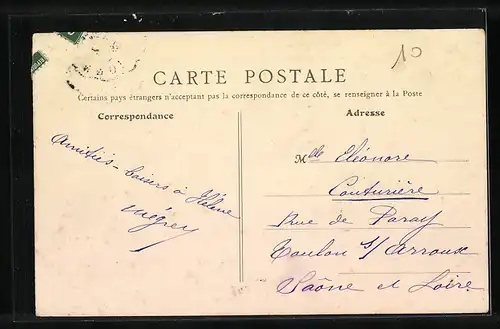 10
CARTE POSTALE
Certains pays étrangers n'acceptant pas la correspondance de ce côté, se renseigner à la Poste
Correspondance
Amitiés - baisers à Hélène
Adresse
Mlle Eléonore
Couturière
Rue de Paray
Toulon s/ Arroux
Saône et Loire